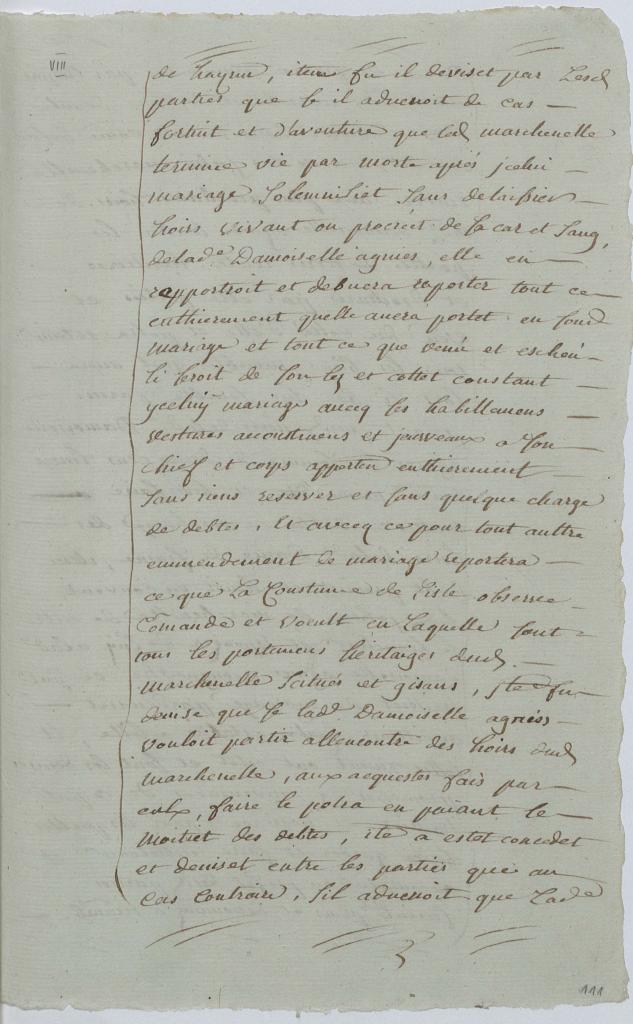 VIII
de haynn, item fu il deviset par Lesd
parties que s'il advenoit de cas
fortuit et d'aventure que led marchenelle
termine vie par mort après jcelui
mariage Solemnisiet Sans delaissier
hoirs vivant ou procréet de sa car et Sang,
delade Damoiselle agnies, elle en
rapportroit et debuera raporter tout ce
enthierement quelle auera portet en Sond
mariage et tout ce que venu et escheu
li seroit de Son lez et costet constant
ycelluy mariage avecq ses habillemens
vestures acoustmens et jouveaux a Son
chief et corps apperten enthierement
Sans riens reserver et Sans quelque charge
de debtes, Et avecq ce pour tout aultre
emmendement de mariage reportera
ce que La Coustume de Lisle observe
Comande et voeult en Laquelle Sont
tous les portemens héritaiges dud
marchenelle Scitués et gisans, Ite fu
devise que se lade Damoiselle agniès
vouloit partir allencontre des hoirs dud
marchenelle, aux acquestes fais par
eulx, faire le polra en paiant le
moitiet des debtes, ite a estet concedet
et deviset entre les parties que au
cas Contraire, S'il advenoit que Lade
111